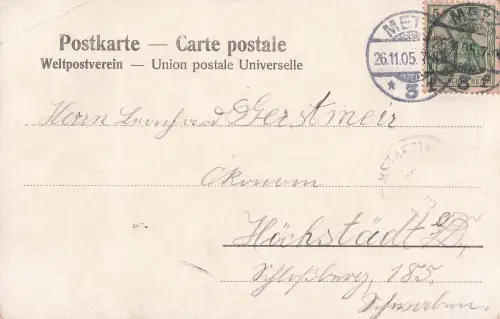 Postkarte — Carte postale
Weltpostverein — Union postale Universelle
METZ
26.11.05.
* 3
5
Herrn Leonhard Gerstmeir
Ökonom
Höchstädt a/D,
Schloßberg, 185,
Schwaben.